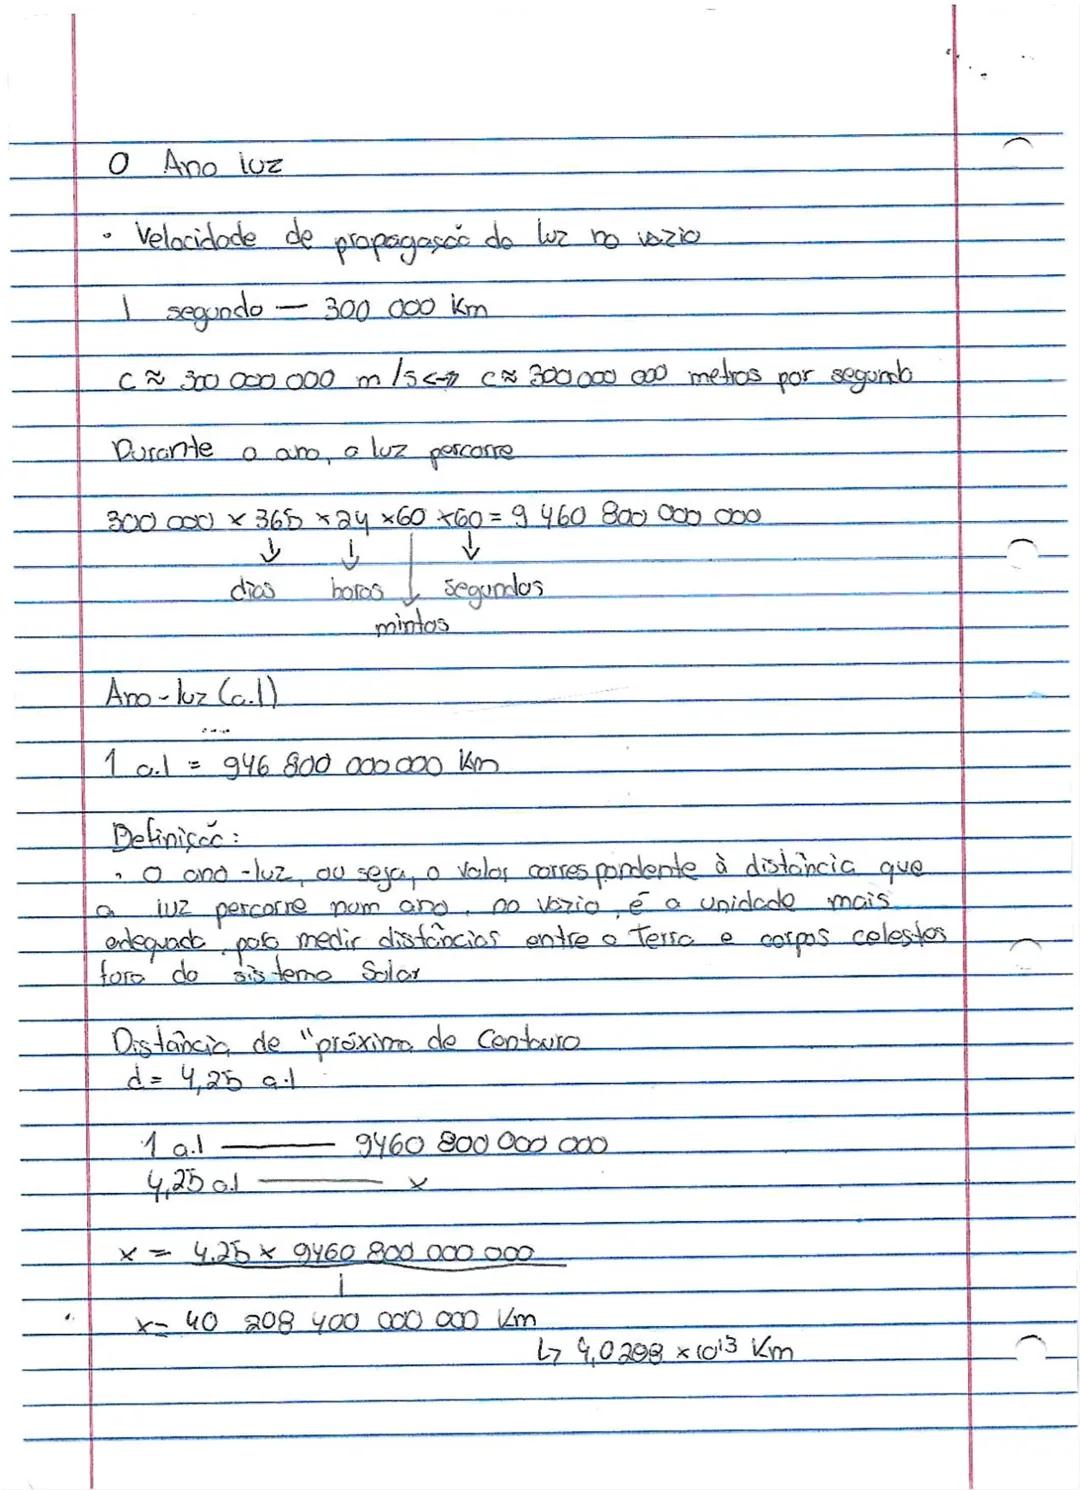 O Ano luz
• Velocidade de propagação da luz no vazio
1 segundo — 300 000 Km
C ≈ 300 000 000 m/s <-> C ≈ 300 000 000 metros por segundo
Durante o ano, a luz percorre
300 000 x 365 x 24 x60 x60 = 9 460 800 000 000
↓ ↓ ↓ ↓
dias horas segundos
mintos
Ano-luz (a.l)
1 a.l = 946 800 000 000 Km
Definição:
• O ano-luz, ou seja, o valor correspondente à distância que
a luz percorre num ano, no vazio, é a unidade mais
adequada para medir distâncias entre a Terra e corpos celestes
fora do sistema Solar
Distância de "próxima de Centauro
d= 4,25 a.l
1 a.l —— 9460 800 000 000
4,25 a.l —— x
x = 4,25 x 9460 800 000 000
1
x= 40 208 400 000 000 Km
↳ 4,0208 x 10¹³ Km